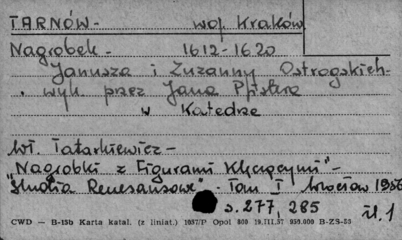 TARNÓW - woj. Kraków
Nagrobek - 1612-1620
Janusza i Zuzanny Ostrogskich -
wyk. przez Jana Pfistera
w Katedrze
Wł. Tatarkiewicz -
"Nagrobki z Figurami Klęczącymi" -
"Studia Renesansowe" - Tom I Wrocław 1956
s. 277, 285
il. 1
CWD — B-13b Karta katal. (z liniat.) 1037/P Opol 800 19.III.57 950.000 B-ZS-55